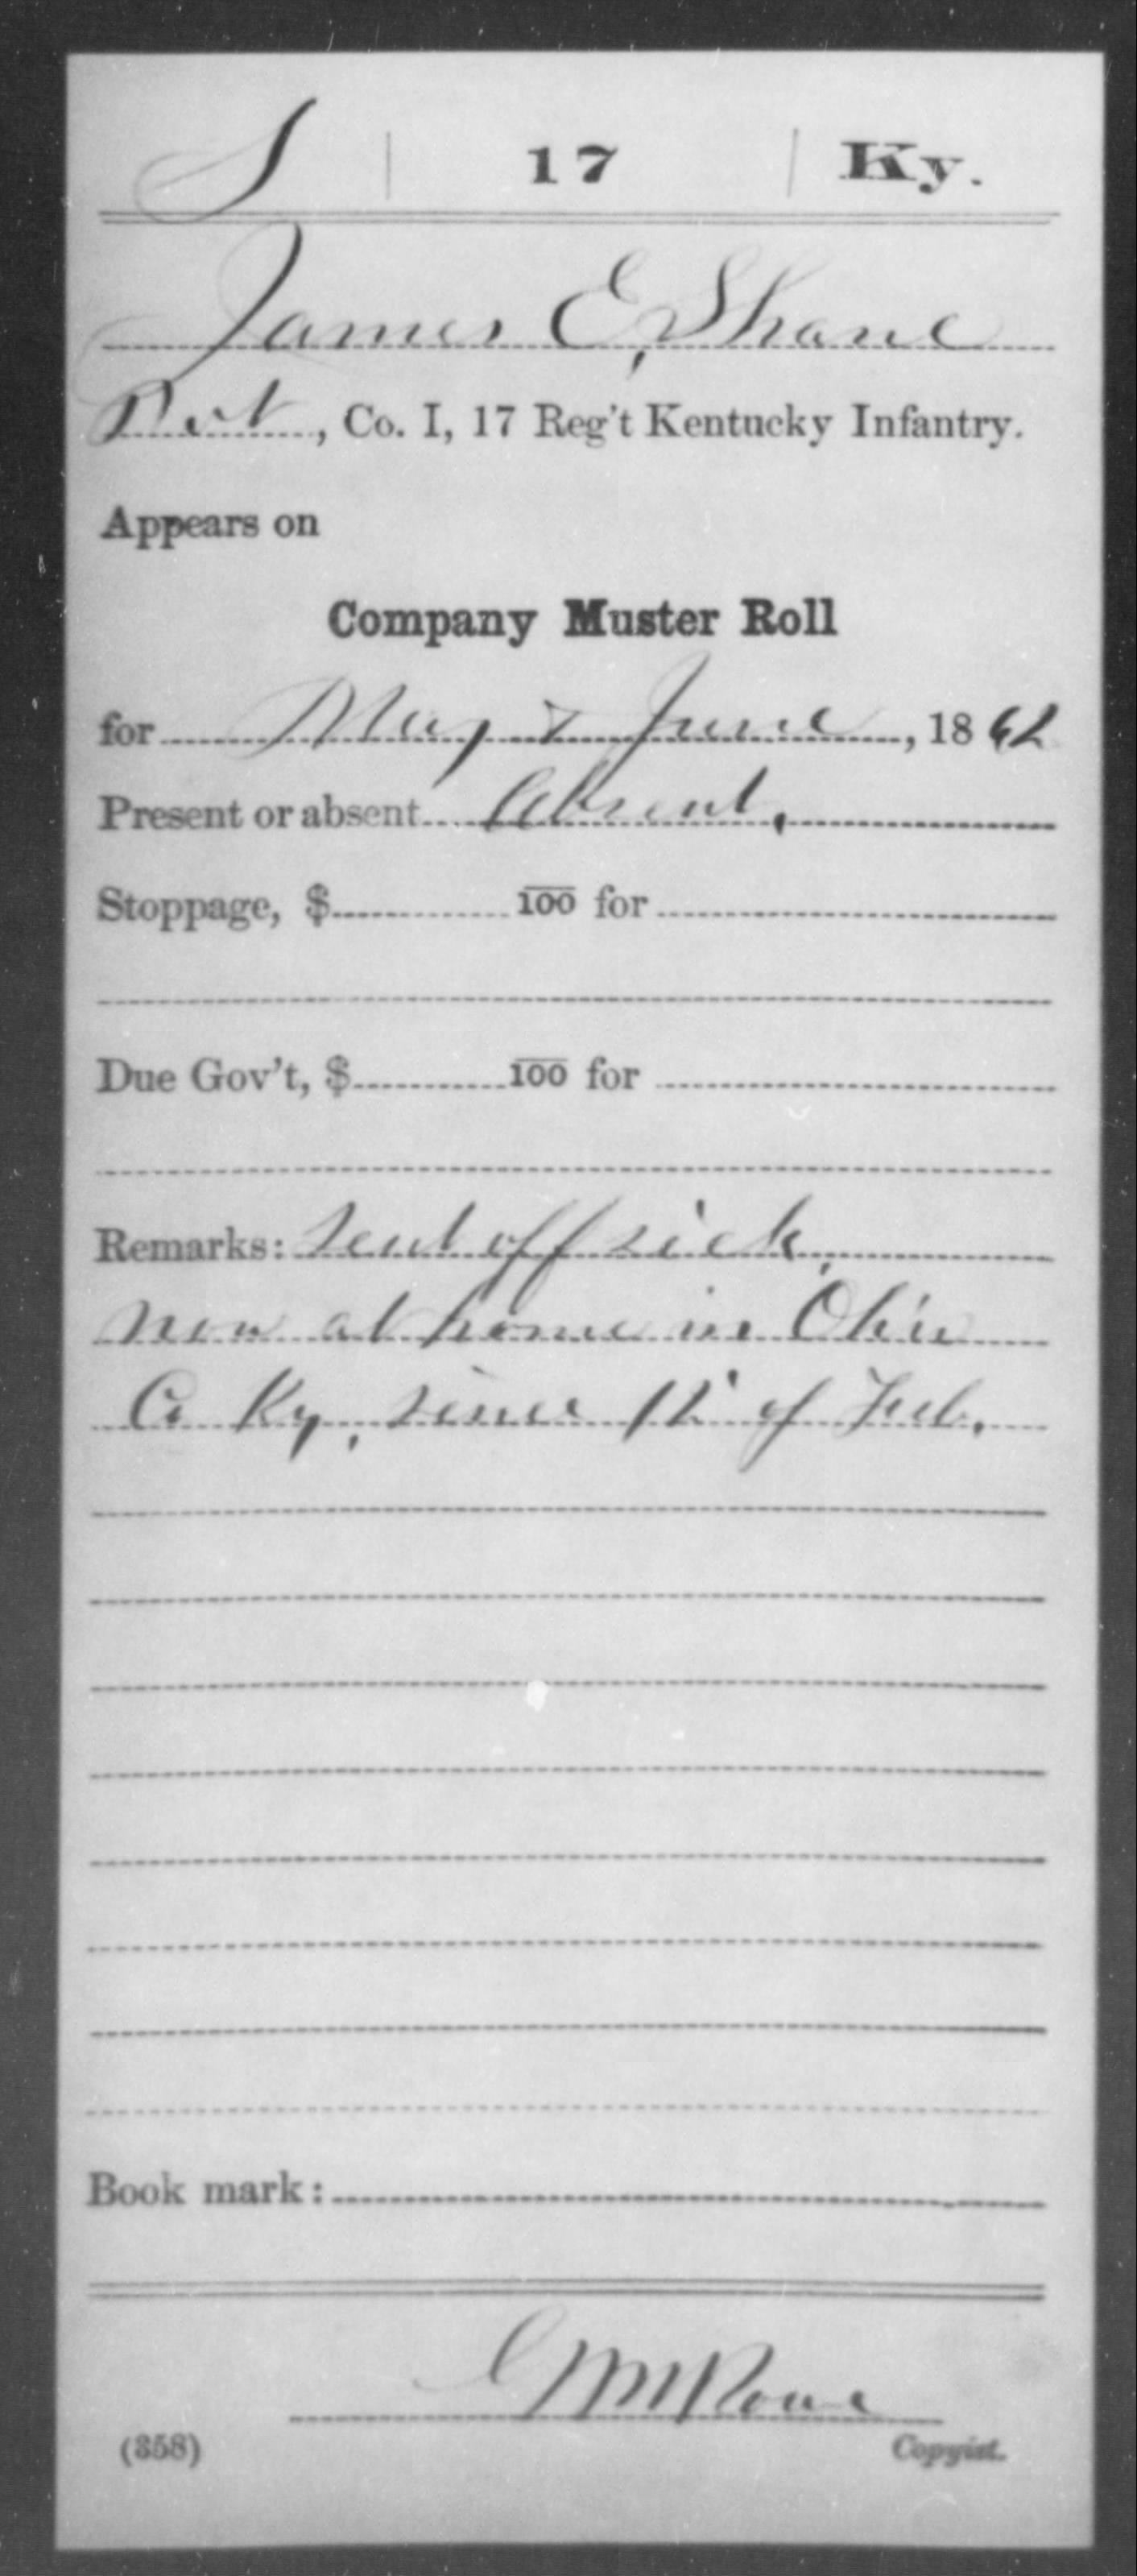 S | 17 | Ky.
James E. Shane
Pvt, Co. I, 17 Reg't Kentucky Infantry.
Appears on
Company Muster Roll
for May & June, 1862
Present or absent Absent.
Stoppage, $ 100 for
Due Gov't, $ 100 for
Remarks: Sent off sick,
now at home in Ohio
Co Ky, since 12" of Feb.
Book mark:
Rowe
(358) Copyist.